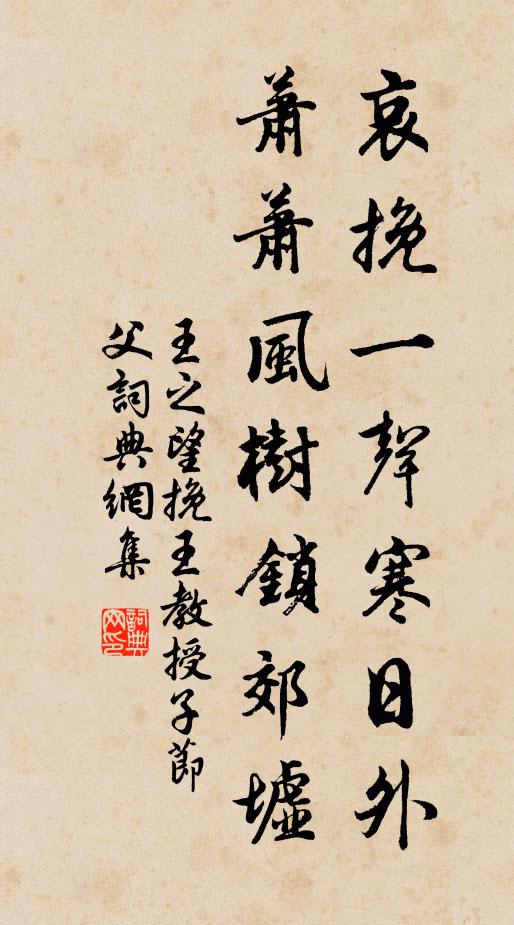 哀挽一聲寒日外
蕭蕭風樹鎖郊墟
王之望挽王教授子節
父詞典網集
詞典
网印